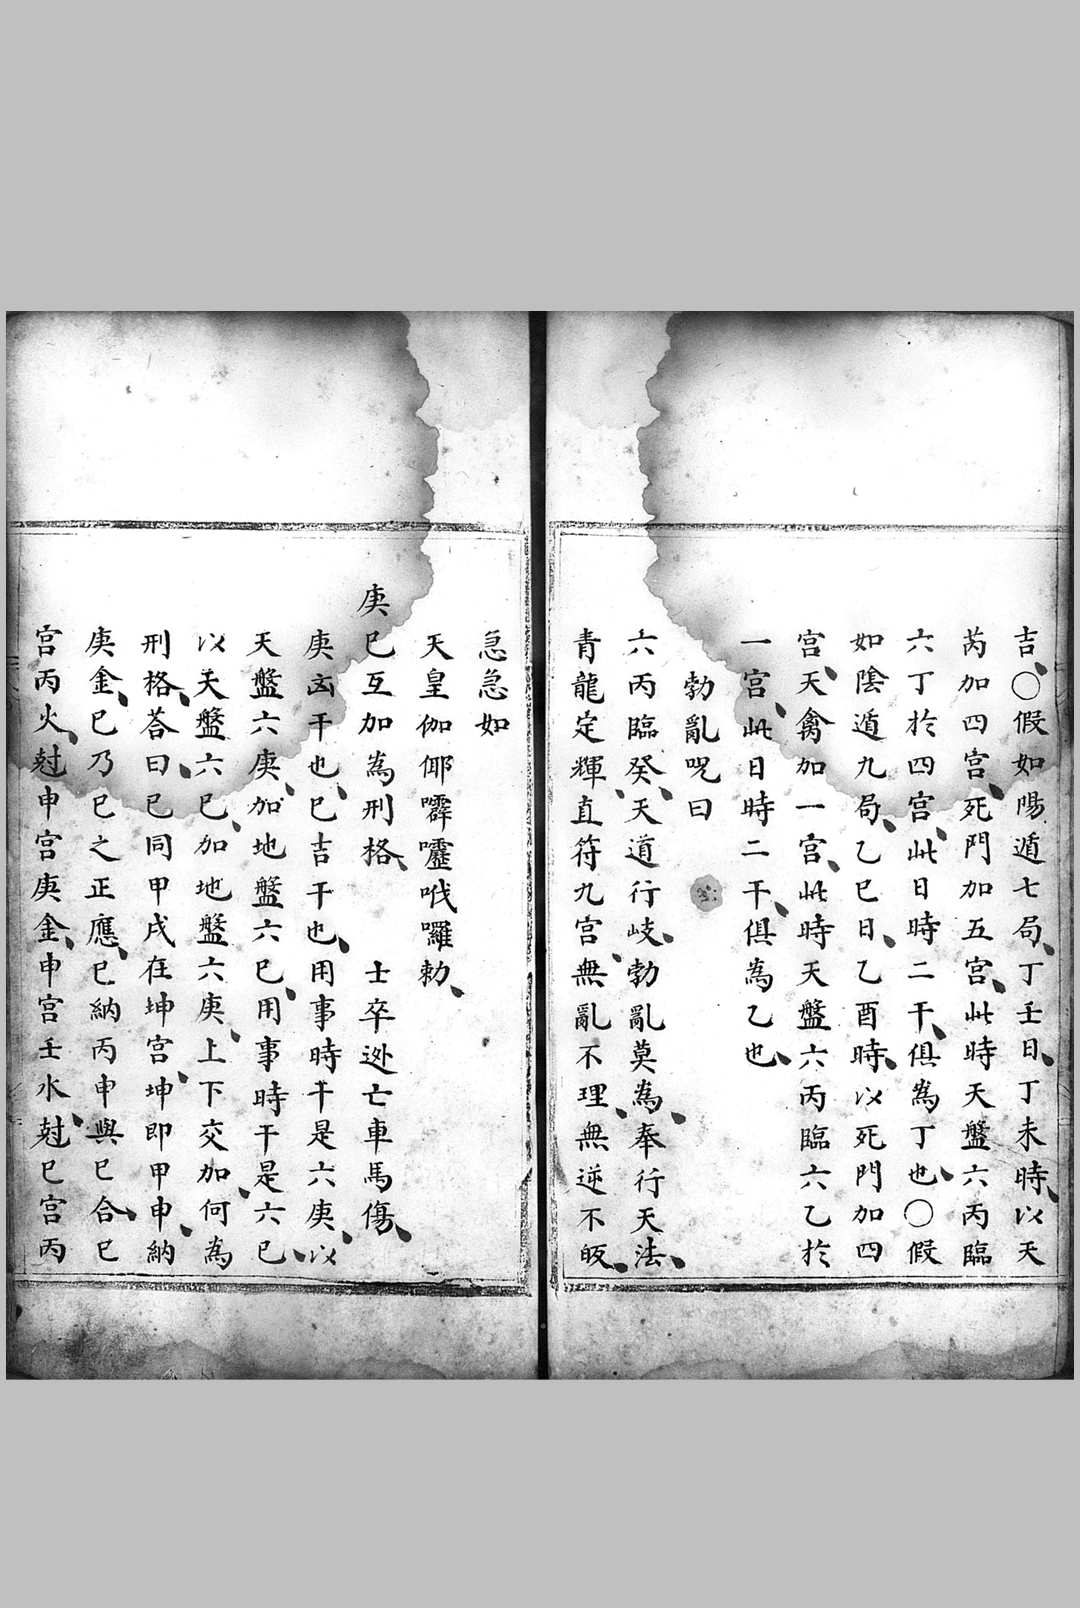 吉○假如陽遁七局丁壬日丁未時以天
芮加四宮死門加五宮此時天盤六丙臨
六丁於四宮此日時二干俱為丁也○假
如陰遁九局乙巳日乙酉時以死門加四
宮天禽加一宮此時天盤六丙臨六乙於
一宮此日時二干俱為乙也
勃亂呪曰
六丙臨癸天道行歧勃亂莫為奉行天法
青龍定輝直符九宮無亂不理無逆不皈
急急如
天皇伽倻霹靂哦囉勅
庚巳互加為刑格 士卒迯亡車馬傷
庚凶干也巳吉干也用事時干是六庚以
天盤六庚加地盤六巳用事時干是六巳
以天盤六巳加地盤六庚上下交加何為
刑格荅曰巳同甲戌在坤宮坤即甲申納
庚金巳乃巳之正應巳納丙申與巳合巳
宮丙火尅申宮庚金申宮壬水尅巳宮丙